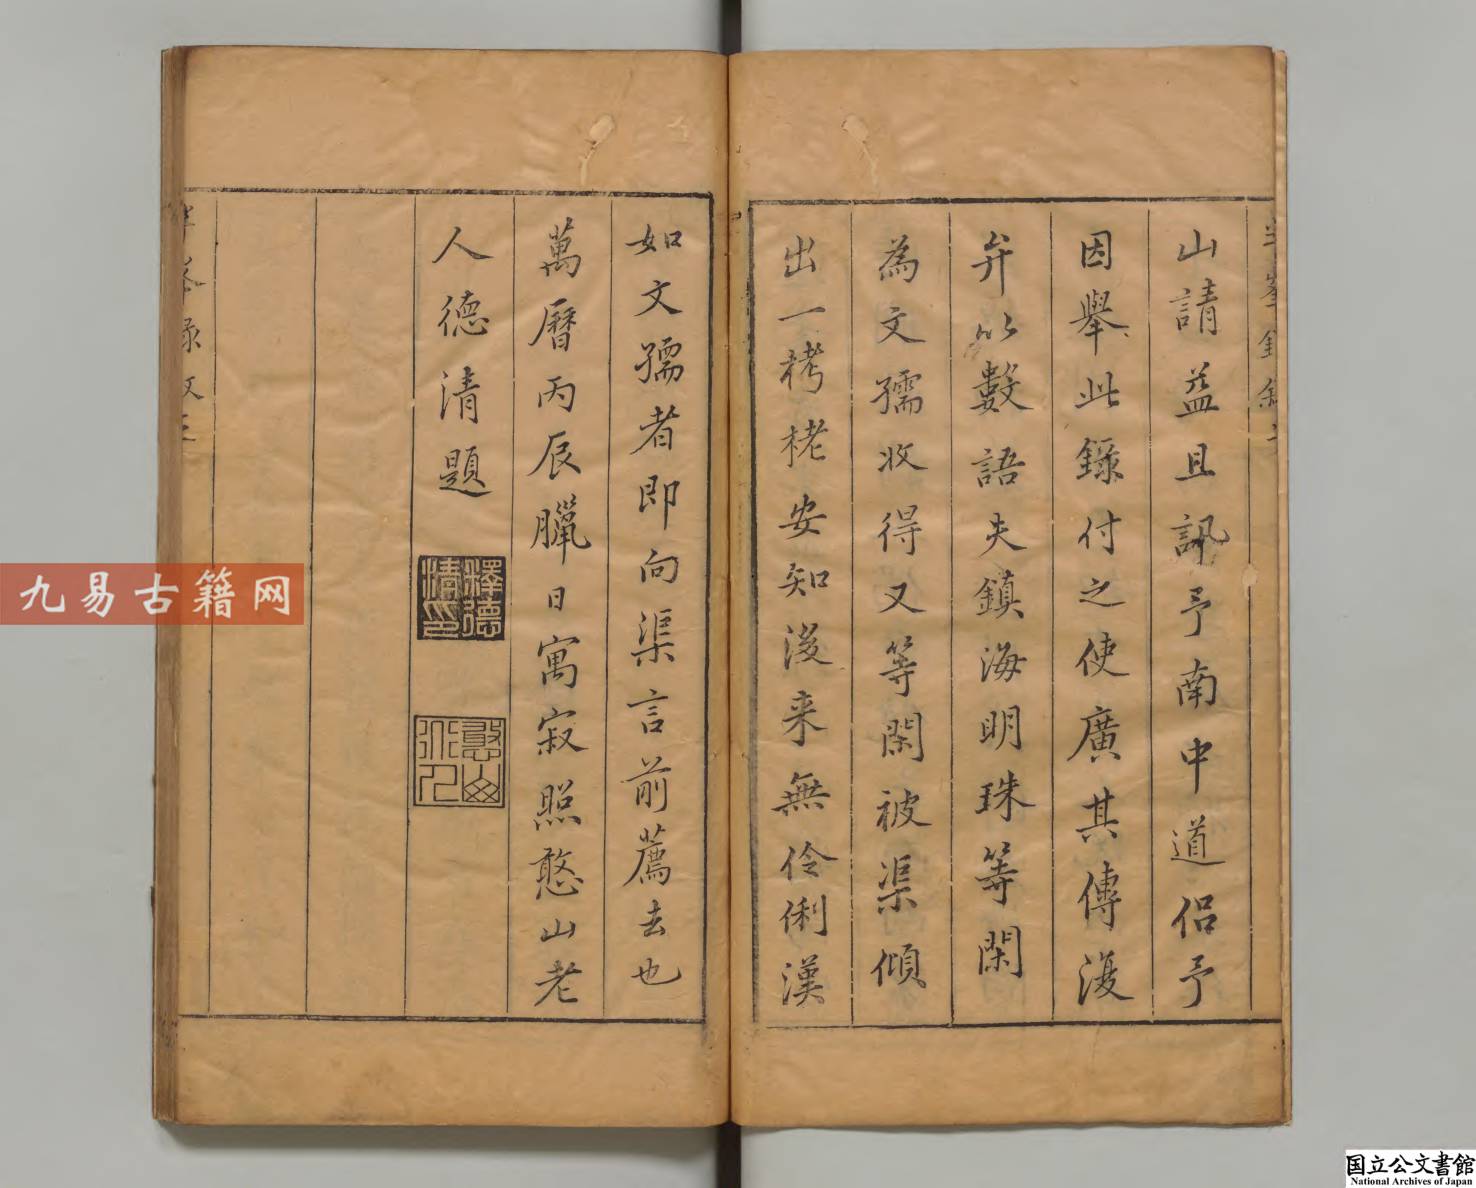 山請益且訊予南中道侶予
因舉此錄付之使廣其傳復
弁以數語夫鎮海明珠等閑
為文孺收得又等閑被渠傾
出一栲栳安知後来無伶俐漢
如文孺者即向渠言前薦去也
萬曆丙辰臘日寓寂照憨山老
人德清題
釋德清印
憨山
九易古籍网
国立公文書館
National Archives of Japan